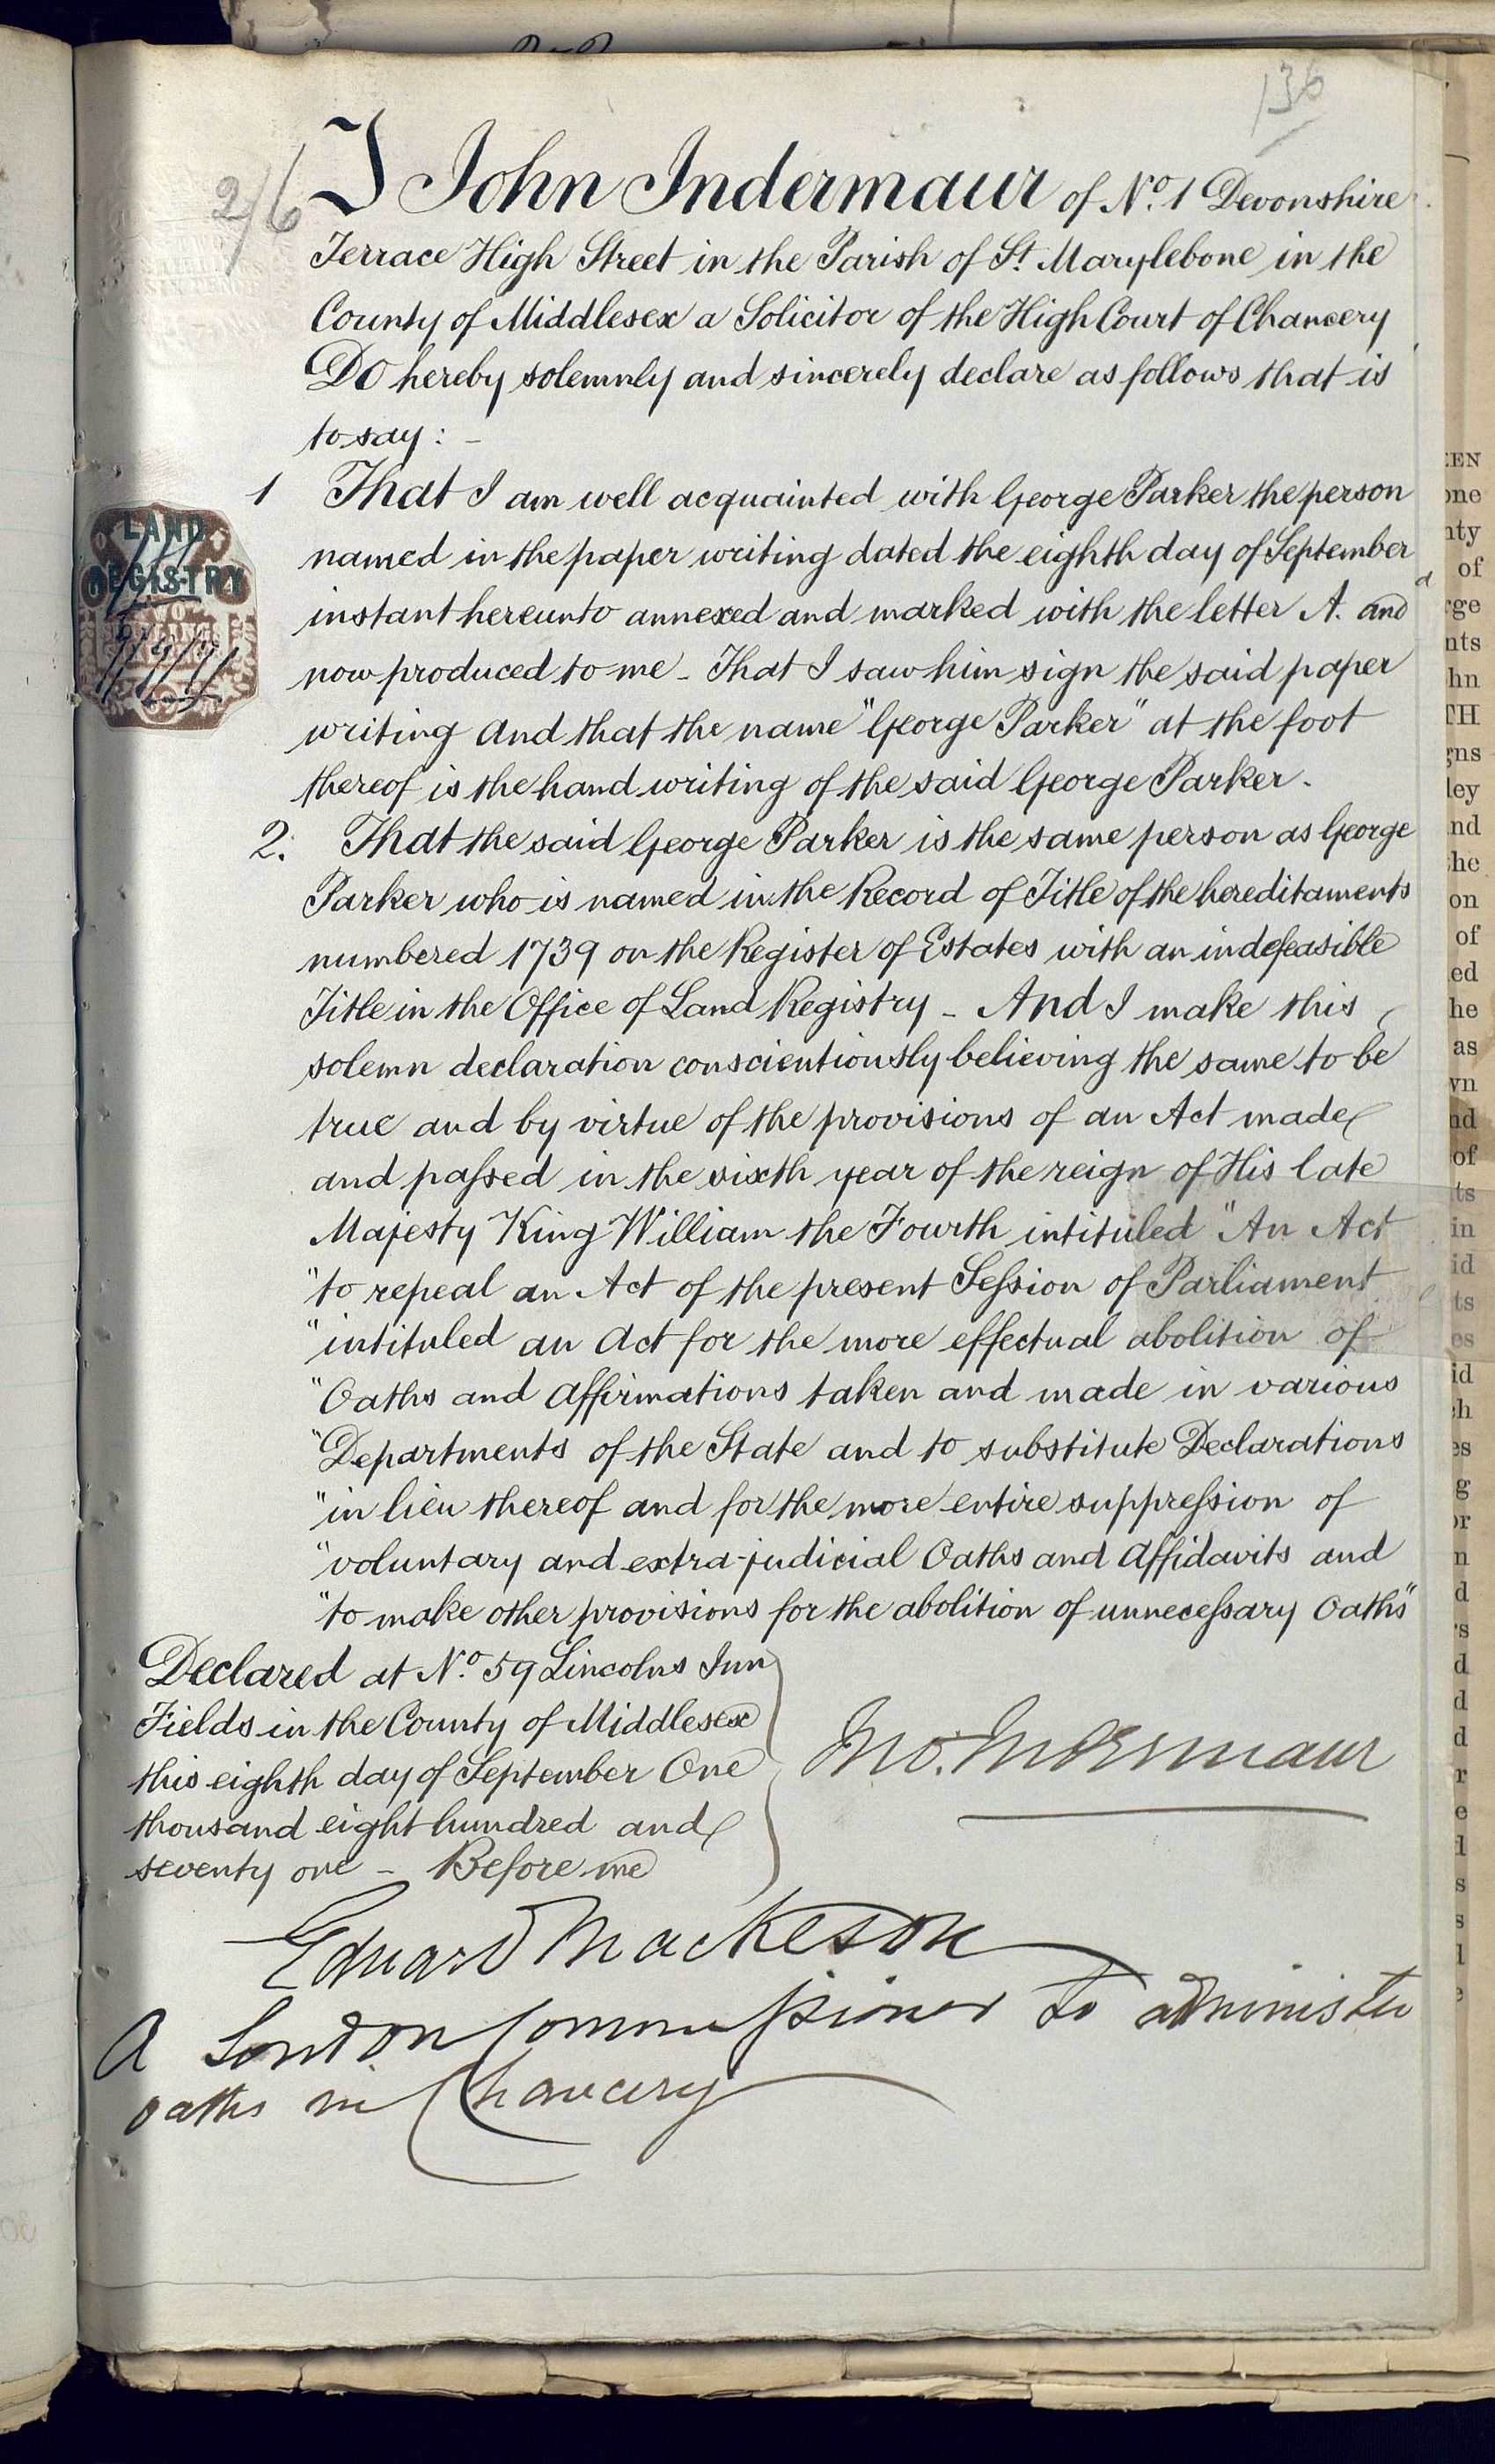 136
2/6
I John Indermaur of No. 1 Devonshire
Terrace High Street in the Parish of St. Marylebone in the
County of Middlesex a Solicitor of the High Court of Chancery
Do hereby solemnly and sincerely declare as follows that is
to say: -
1 That I am well acquainted with George Parker the person
named in the paper writing dated the eighth day of September
instant hereunto annexed and marked with the letter A. and
now produced to me - That I saw him sign the said paper
writing And that the name "George Parker" at the foot
thereof is the hand writing of the said George Parker.
LAND
REGISTRY
2. That the said George Parker is the same person as George
Parker who is named in the Record of Title of the hereditaments
numbered 1739 on the Register of Estates with an indefeasible
Title in the Office of Land Registry - And I make this
solemn declaration conscientiously believing the same to be
true and by virtue of the provisions of an Act made
and passed in the sixth year of the reign of His late
Majesty King William the Fourth intituled "An Act
"to repeal an Act of the present Session of Parliament
"intituled an Act for the more effectual abolition of
"Oaths and Affirmations taken and made in various
"Departments of the State and to substitute Declarations
"in lieu thereof and for the more entire suppression of
"voluntary and extra-judicial Oaths and Affidavits and
"to make other provisions for the abolition of unnecessary Oaths"
Declared at No. 59 Lincolns Inn
Fields in the County of Middlesex
this eighth day of September One
thousand eight hundred and
seventy one - Before me
Jno. Indermaur
Edward Mackeson
A London Commissioner to administer
oaths in Chancery